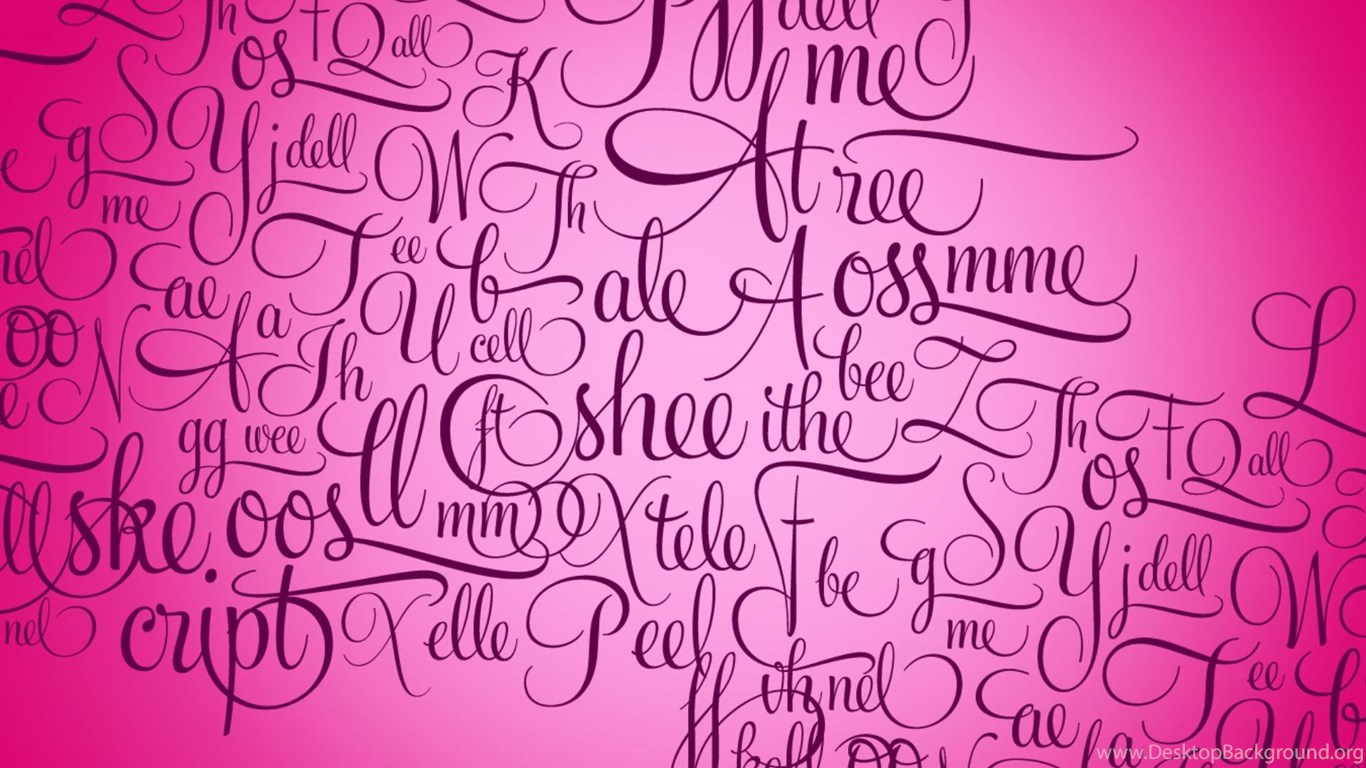 Th
os T Q all
dell
me
K
g S Y j dell W Th At ree
me T ee b ale A oss mme
nel ae a U cell
oo N A Th bee Z L
gg wee ll ft shee ithe Th T Q all
os
ske oos mm X tele T be g S Y j dell W
nel cript X elle Peel me T ee b
nél ae
oo la U
www.DesktopBackground.org